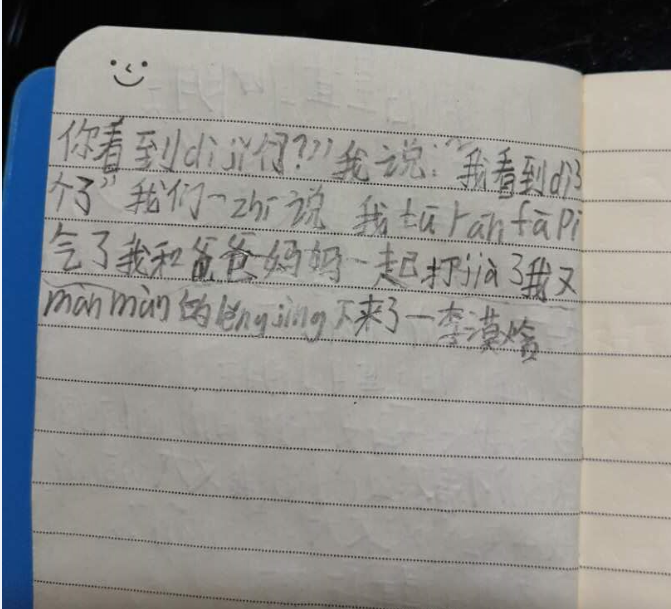 你看到dì jǐ行?”我说:“我看到dì3
个了”我们一zhí说 我tū rán fā pí
气了我和爸爸妈妈一起打jià了我又
màn màn的lěng jìng下来了一李漠